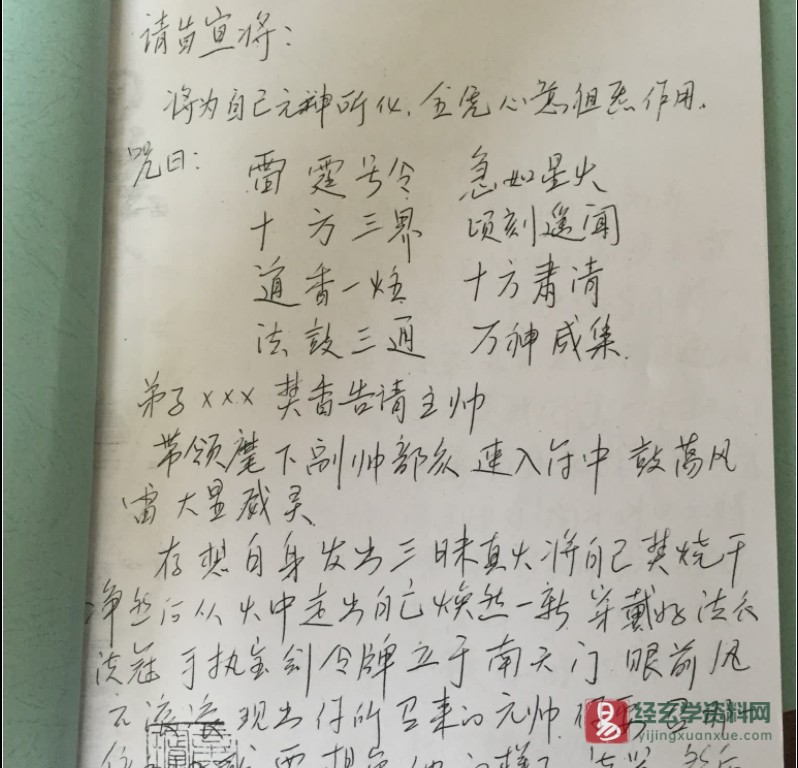 请旨宣将：
将为自己元神所化，全凭心意组炁作用。
咒曰：雷霆号令 急如星火
十方三界 顷刻遥闻
道香一炷 十方肃清
法鼓三通 万神咸集.
弟子xxx 焚香告请主帅
带领麾下副帅部众 速入符中 鼓荡风
雷大显威灵
存想自身发出三昧真火将自己焚烧干
净然后从火中走出自己焕然一新 穿戴好法衣
法冠 手执宝剑令牌立于南天门 眼前风
云滚滚现出你所召来的元帅
要想
然后
经玄学资料网
yijingxuanxue.com